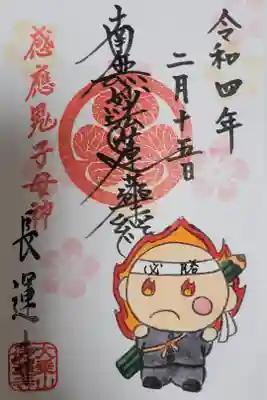 令和四年
二月十五日
南無妙法蓮華経
感應鬼子母神
長運寺
必勝